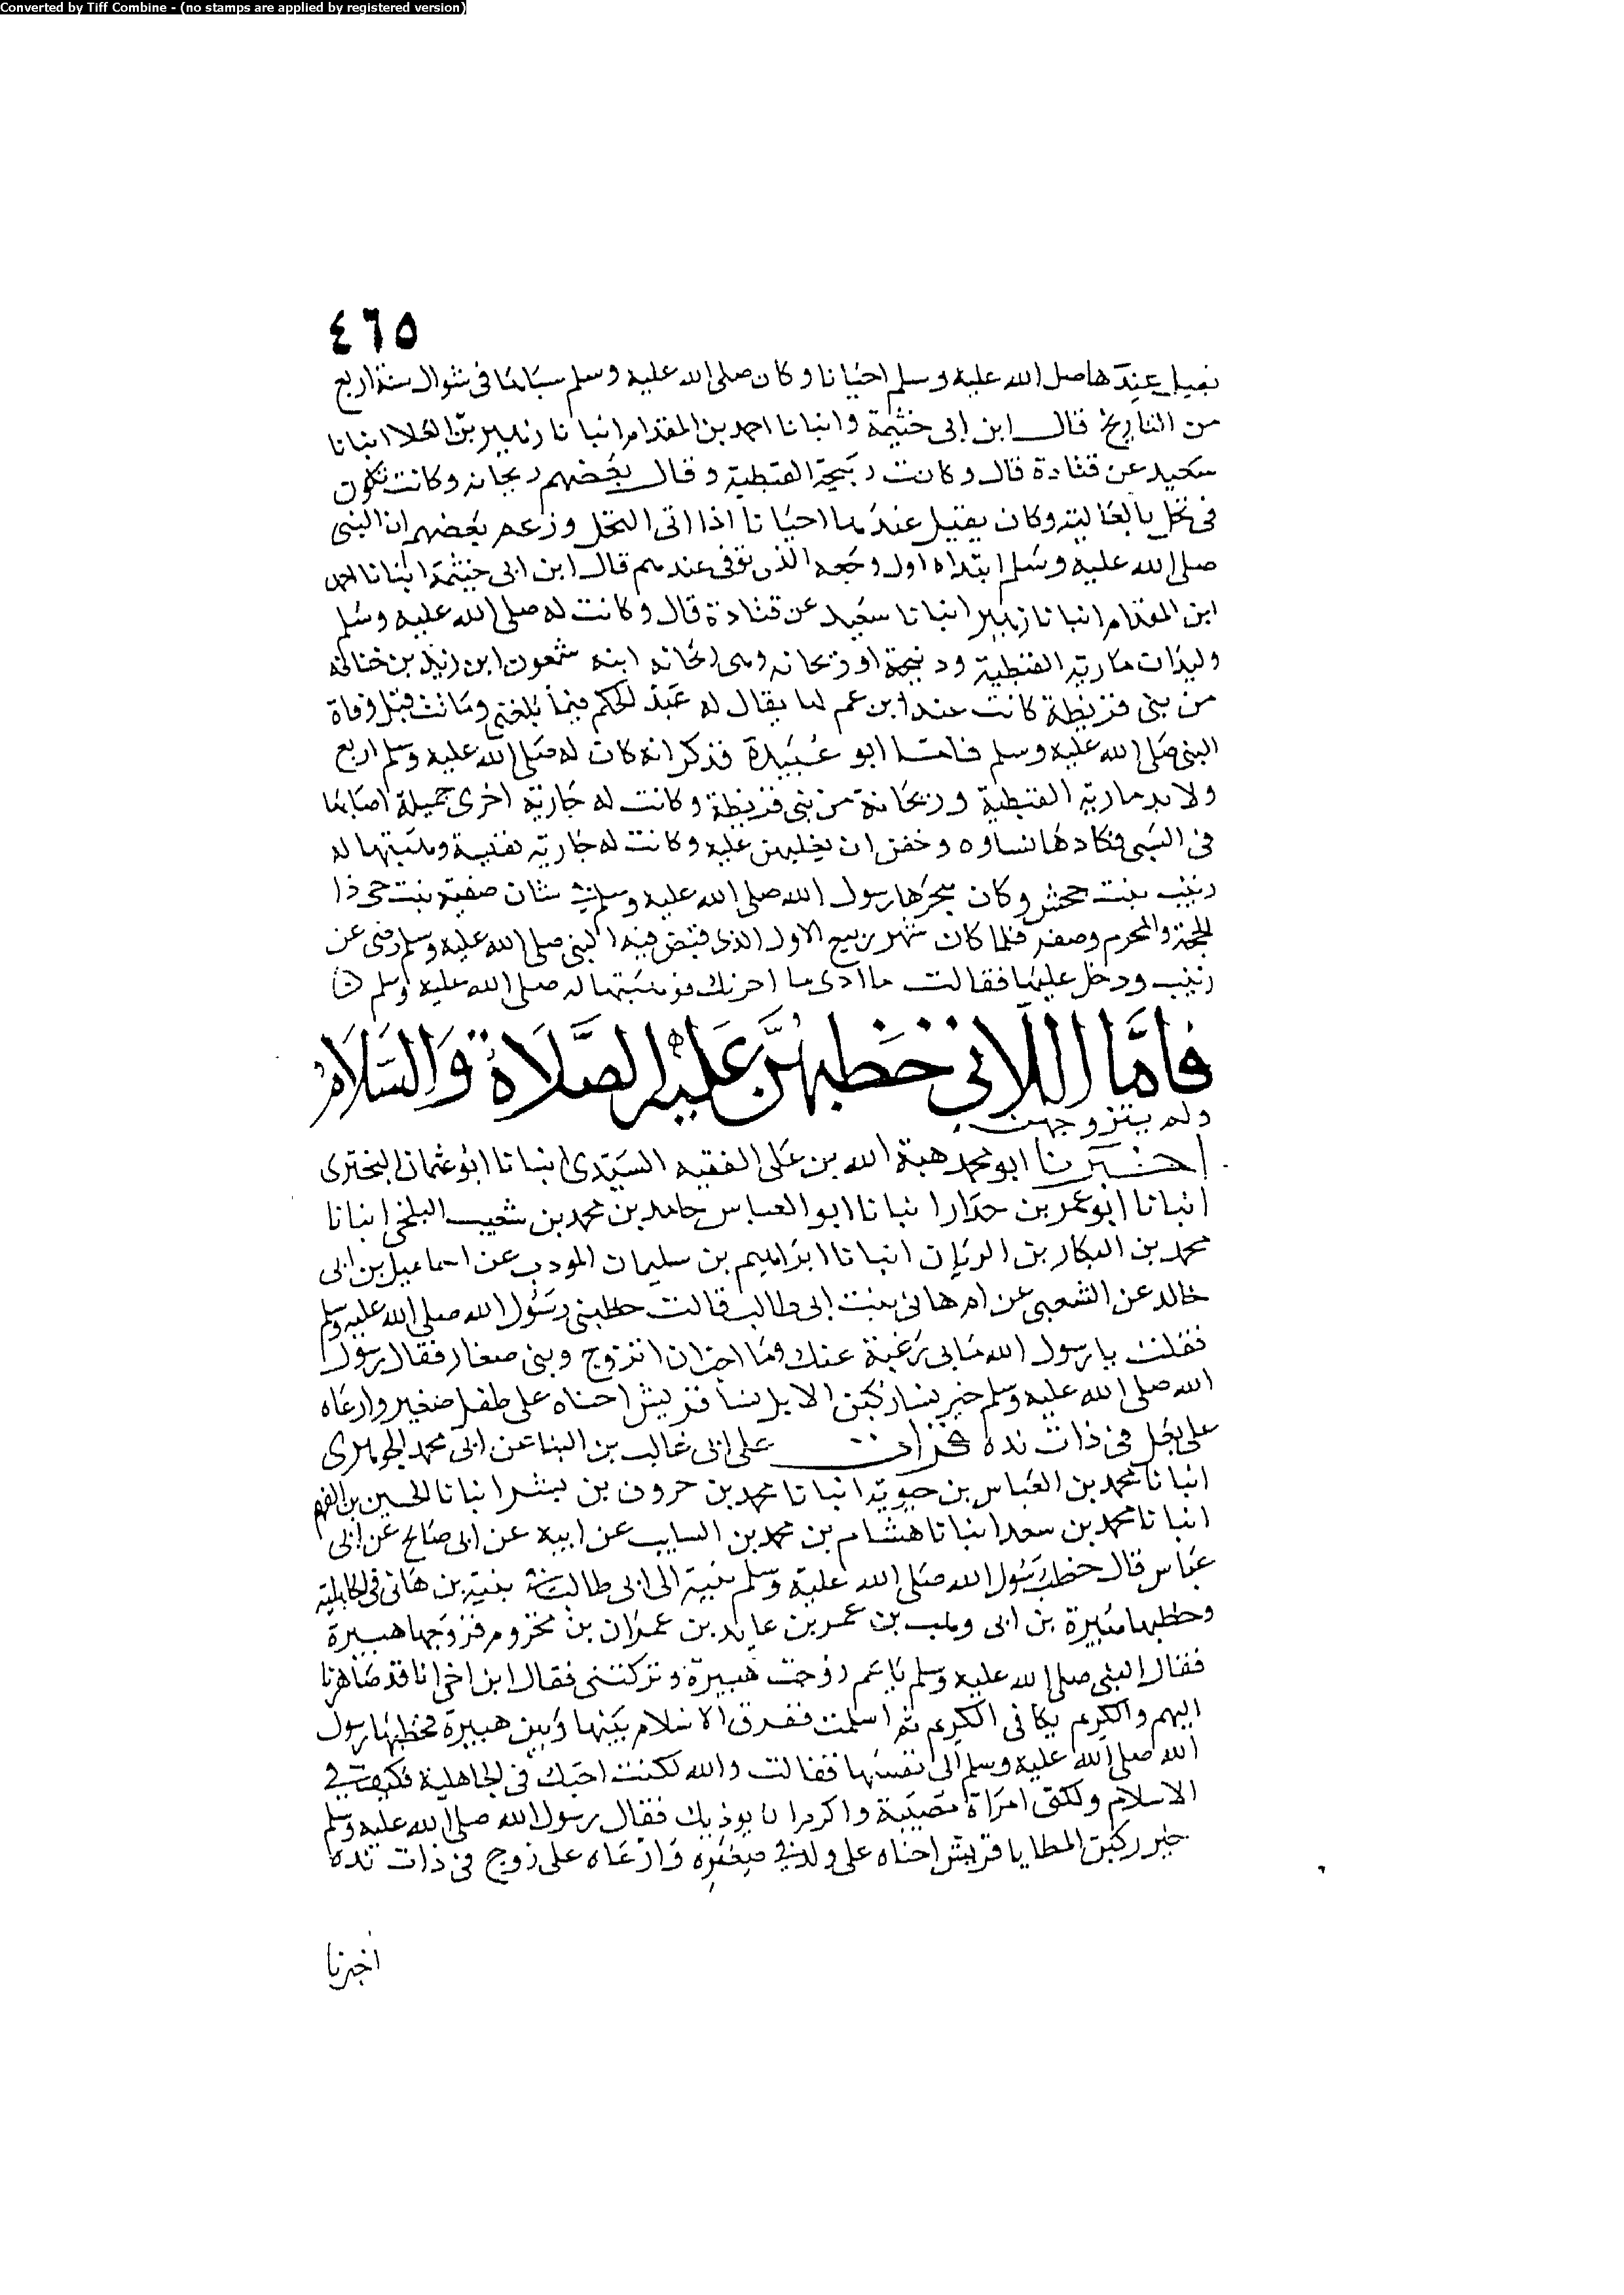 Converted by Tiff Combine - (no stamps are applied by registered version)
٤٦٥
يقيل عندها صلى الله عليه وسلم احيانا وكان صلى الله عليه وسلم سباها في شوال سنة اربع
من التاريخ قال ابن ابي خثيمة وانبانا احمد بن المقدام انبانا زهير بن العلا انبانا
سعيد عن قتادة قال وكانت ربيحة القبطية وقال بعضهم ريحانه وكانت تكون
في نخل بالعالية وكان يقيل عندها احيانا اذا اتى النخل وزعم بعضهم ان النبي
صلى الله عليه وسلم ابتداه اول وجعه الذي توفي عندهم قال ابن ابي خيثمة انبانا احمد
ابن المقدام انبانا زهير انبانا سعيد عن قتادة قال وكانت له صلى الله عليه وسلم
وليدات مارية القبطية وربيحة او ريحانه وهي ريحانه ابنه شمعون ابن زيد بن خنافة
من بني قريظة كانت عند ابن عم لها يقال له عبد الحكم فيما بلغني وماتت قبل وفاة
النبي صلى الله عليه وسلم فامّا ابو عبيدة فذكر انه كان له صلى الله عليه وسلم اربع
ولايد مارية القبطية وريحانة من بني قريظة وكانت له جارية اخرى جميلة اصابها
في السبي فكادها نساوه وخفن ان يغلبهن عليه وكانت له جارية نفيسة وهبتها له
زينب بنت جحش وكان هجرها رسول الله صلى الله عليه وسلم في شان صفية بنت حيي ذا
الحجة والمحرم وصفر فلما كان شهر ربيع الاول الذي قبض فيه النبي صلى الله عليه وسلم رضى عن
زينب ودخل عليها فقالت ما ادري ما اجزيك فوهبتها له صلى الله عليه وسلم
فَامَّا اللَّاتي خَطبهُنَّ عَلَيْه الصَّلَاة وَالسَّلَام
ولم يتزوجهن
اخبرنا ابو محمد هبة الله بن على الفقيه السيدى انبانا ابو عثمان البحترى
انبانا ابو عمر بن حمدار انبانا ابو العباس حامد بن محمد بن شعيب البلخي انبانا
محمد بن البكار بن الريان انبانا ابراهيم بن سليمان المودب عن اسماعيل بن ابي
خالد عن الشعبي عن ام هاني بنت ابي طالب قالت خطبني رسول الله صلى الله عليه وسلم
فقلت يا رسول الله ما بي رغبة عنك وما احب ان اتزوج وبني صغار فقال رسول
الله صلى الله عليه وسلم خير نسا ركبن الابل نسا قريش احناه على طفل صغير وارعاه
على بعل في ذات يده قرات على ابي غالب بن البنا عن ابي محمد الجوهرى
انبانا محمد بن العباس بن حيويه انبانا محمد بن حروف بن بشر انبانا الحسين بن الفهم
انبانا محمد بن سعد انبانا هشام بن محمد بن السايب عن ابيه عن ابي صالح عن ابن
عباس قال خطب رسول الله صلى الله عليه وسلم الى ابي طالب بنته بن هاني في الجاهلية
وخطبها هبيرة بن ابي وهب بن عمر بن عايد بن عمران بن مخزوم فزوجها هبيرة
فقال النبي صلى الله عليه وسلم يا عم زوجت هبيرة وتركتني فقال ابن اخي انا قد صاهرنا
اليهم والكريم يكافي الكريم ثم اسلمت ففرق الاسلام بينها وبين هبيرة فخطبها رسول
الله صلى الله عليه وسلم الى نفسها فقالت والله لكنت احبك في الجاهلية فكيف في
الاسلام ولكنى امراة مصبية واكره ان يوذيك فقال رسول الله صلى الله عليه وسلم
خير ركبن المطايا قريش احناه على ولد في صغره وارعاه على زوج في ذات يده
اخبرنا